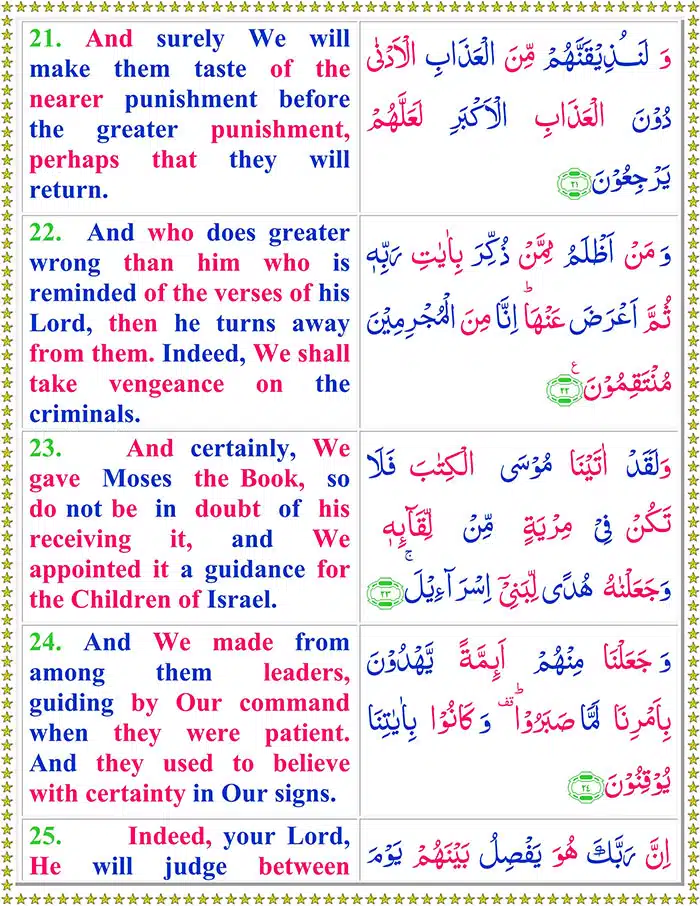 21. And surely We will
make them taste of the
nearer punishment before
the greater punishment,
perhaps that they will
return.
وَ لَنُذِيْقَنَّهُمْ مِّنَ الْعَذَابِ الْاَدْنٰى
دُوْنَ الْعَذَابِ الْاَكْبَرِ لَعَلَّهُمْ
يَرْجِعُوْنَ ٢١
22. And who does greater
wrong than him who is
reminded of the verses of his
Lord, then he turns away
from them. Indeed, We shall
take vengeance on the
criminals.
وَمَنْ اَظْلَمُ مِمَّنْ ذُكِّرَ بِاٰيٰتِ رَبِّهٖ
ثُمَّ اَعْرَضَ عَنْهَا ؕ اِنَّا مِنَ الْمُجْرِمِيْنَ
مُنْتَقِمُوْنَ ۧ ٢٢
23. And certainly, We
gave Moses the Book, so
do not be in doubt of his
receiving it, and We
appointed it a guidance for
the Children of Israel.
وَلَقَدْ اٰتَيْنَا مُوْسَى الْكِتٰبَ فَلَا
تَكُنْ فِىْ مِرْيَةٍ مِّنْ لِّقَآٮِٕهٖ
وَجَعَلْنٰهُ هُدًى لِّبَنِىْۤ اِسْرَآءِيْلَ ۚ ٢٣
24. And We made from
among them leaders,
guiding by Our command
when they were patient.
And they used to believe
with certainty in Our signs.
وَ جَعَلْنَا مِنْهُمْ اَٮِٕمَّةً يَّهْدُوْنَ
بِاَمْرِنَا لَمَّا صَبَرُوْا ؕ قف وَ كَانُوْا بِاٰيٰتِنَا
يُوْقِنُوْنَ ٢٤
25. Indeed, your Lord,
He will judge between
اِنَّ رَبَّكَ هُوَ يَفْصِلُ بَيْنَهُمْ يَوْمَ